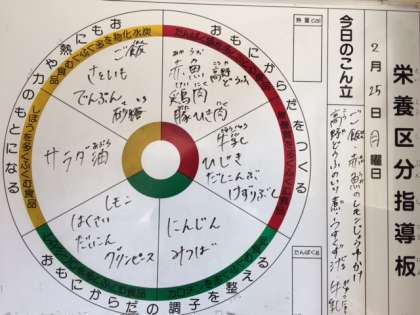 栄養区分指導板
2月25日(月)曜日
今日のこん立
ご飯・赤魚のレモンじょうゆかけ
高野どうふのいり煮・うすくず汁
牛乳
熱量
たんぱく
おもにからだをつくる
おもにからだの調子を整える
力や熱にもおもとになる
ご飯
さといも
でんぷん
砂糖
サラダ油
赤魚
高野どうふ
鶏肉
豚ひき肉
牛乳
ひじき
だしこんぶ
けずりぶし
レモン
はくさい
だいこん
グリンピース
にんじん
みつば